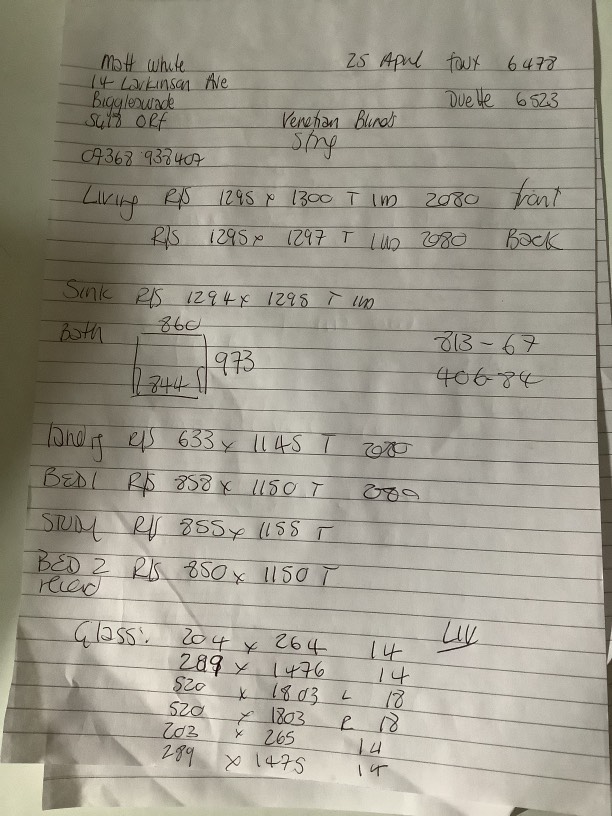 Matt White 25 April faux 6478
14 Larkinson Ave
Biggleswade Duette 6523
SG18 0RF Venetian Blinds
String
07368 938407
Living R/S 1295 x 1300 T 1m 2080 front
R/S 1295 x 1297 T 1m 2080 Back
Sink R/S 1294 x 1298 T 1m
860
Bath 973 813-67
844 406-84
R/S 633 x 1145 T 2080
BED 1 R/S 858 x 1150 T 2080
STUDY R/S 855 x 1158 T
BED 2 R/S 850 x 1150 T
Glass: 204 x 264 14 LIV
289 x 1476 14
520 x 1803 L 18
520 x 1803 R 18
203 x 265 14
289 x 1475 14